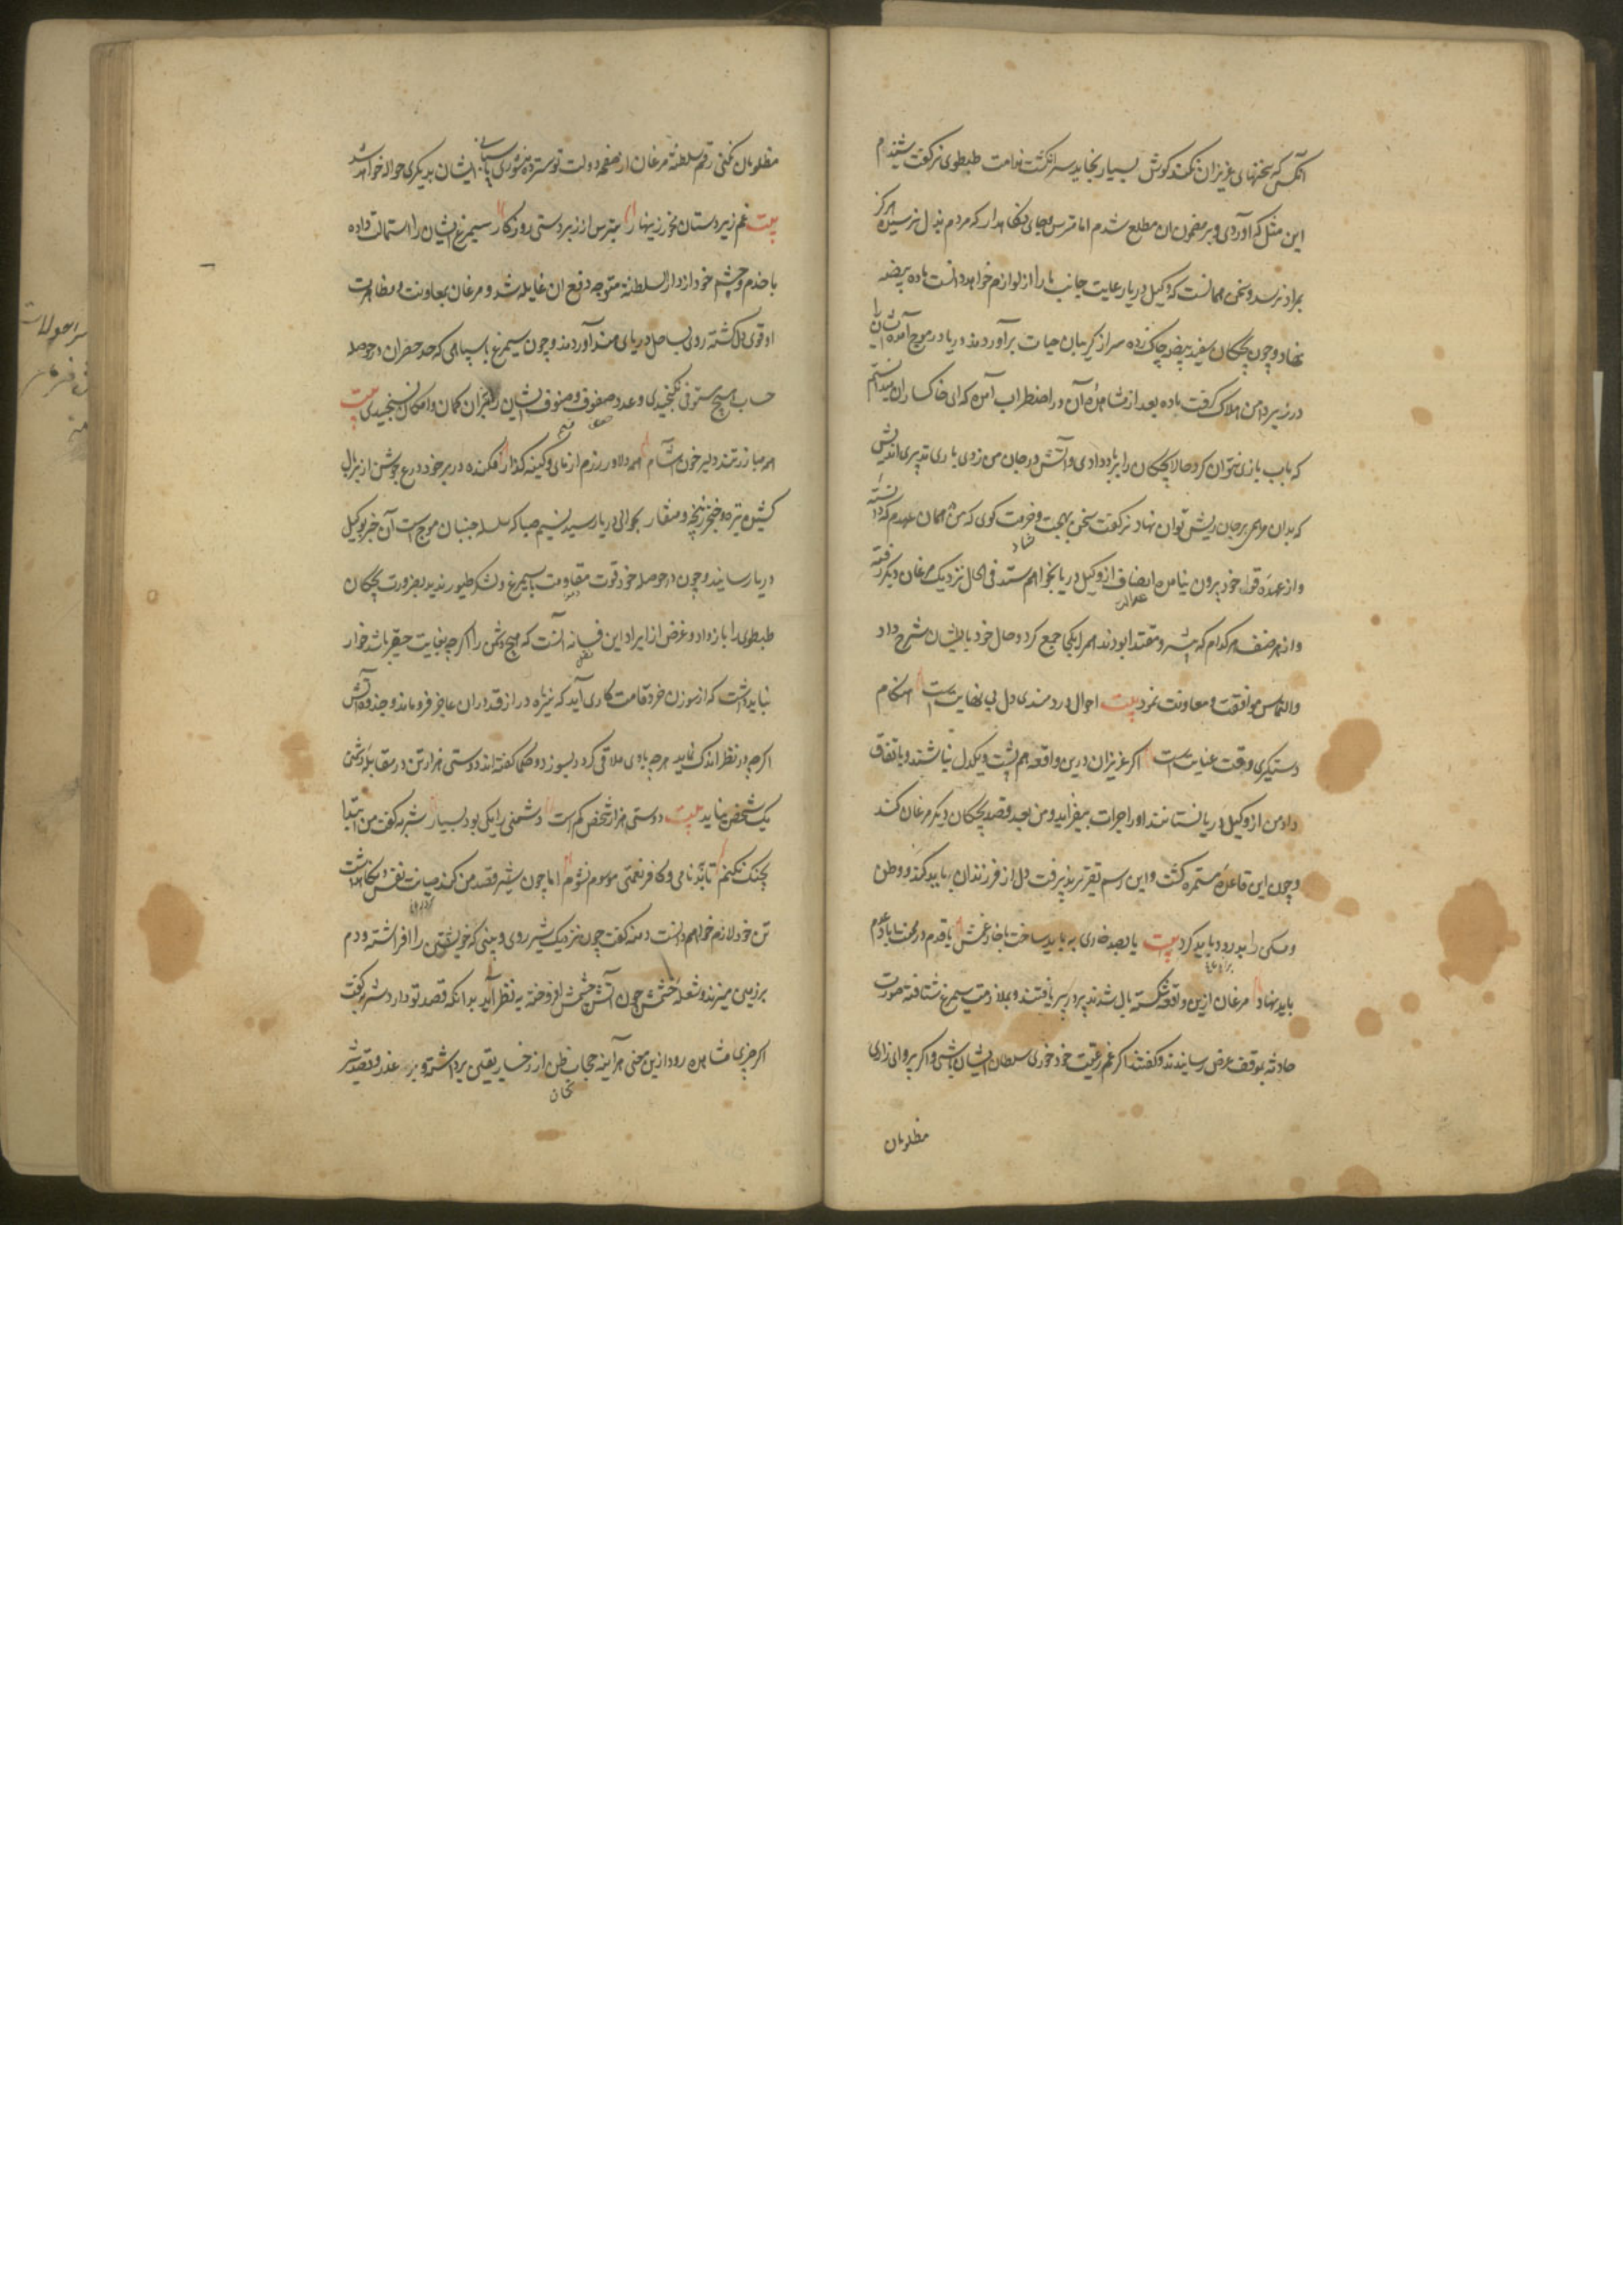 آنکس که سخنهای عزیزان نکند گوش بسیار بخاید سر انگشت ندامت طیطوی نر گفت شنیدم
این مثل که آوردی و بر مضمون آن مطلع شدم اما مترس و جای نگاهدار که مردم بددل هرگز
بمراد نرسد و سخن همانست که وکیل دریا رعایت جانب ما را از لوازم خواهد دانست ماده بیضه
نهاد و چون بچگان سفید بیضه چاک زده سر از گریبان حیات برآوردند دریا در موج آمده ایشان را
در زیر دامن هلاک گرفت ماده بعد از مشاهدهٔ آن در اضطراب آمد که ای خاکسار من میدانستم
که بآب بازی نتوان کرد حالا بچگان را بباد دادی و آتش در جان من زدی باری تدبیری اندیش
که بدان مرهمی بر جان ریش توان نهاد نر گفت سخن بجهت و حرمت گوی که من همان عهدم که دانسته
و از عهدهٔ قول خود بیرون نیامده انصاف از وکیل دریا بخواهم ستد فی الحال نزدیک مرغان دیگر رفته
و از هر صنف هر کدام که پیشرو مقتدا بودند همه را یکجا جمع کرد و حال خود با ایشان شرح داد
والتماس موافقت و معاونت نمود بیت احوال دردمندی دل بی نهایت است هنگام
دستگیری وقت عنایت است اگر عزیزان درین واقعه هم پشت و یکدل نباشند و باتفاق
داد من از وکیل دریا نستانند او را جرات بیفزاید و من بعد قصد بچگان دیگر مرغان کند
و چون این قاعده مستمره گشت و این رسم تقرر پذیرفت دل از فرزندان بباید کند و وطن
و مسکن را بدرود باید کرد بیت یا بصد خاری به باید ساخت با خار غمش یا قدم در محنت آباد عدم
باید نهاد مرغان ازین واقعه شکسته بال شدند پرواز یافتند و بملازمت سیمرغ شتافته صورت
حادثه بموقف عرض رسانیدند و گفتند اگر غم رعیت خود خوری سلطان ایشان باشی و اگر پروای زاری
مظلومان
مظلومان نکنی رقم سلطنة مرغان از صفحه دولت تو سترده منشور پاسبانی ایشان بدیگری حواله خواهد شد
بیت غم زیردستان بخور زینهار بترس از زبردستی روزگار سیمرغ ایشان را استمالت داده
با خدم و حشم خود از دار السلطنة متوجه دفع آن غایله شد و مرغان بمعاونت و مظاهرت
او قوی دل گشته روی بساحل دریای هند آوردند و چون سیمرغ با سپاهی که حد حصر آن در حوصله
حساب هیچ مستوفی نگنجیدی و عدد صفوف و صنوف ایشان را میزان گمان و امکان نسنجیدی بیت
همه مبارز تند دلیر خون آشام همه دلاور رزم آزمای و کینه گذار فکنده در بر خود درع و جوشن از پر و بال
کشیده نیزه و خنجر ز پنجه و منقار بحوالی دریا رسید نسیم صبا که سلسله جنبان موج است آن خبر بوکیل
دریا رسانید و چون در حوصله خود قوت مقاومت سیمرغ و لشکر طیور ندید بضرورت بچگان
طیطوی را باز داد و غرض از ایراد این فسانه آنست که هیچ دشمن را اگرچه بغایت حقیر باشد خوار
نباید داشت که از سوزن خرد قامت کاری آید که نیزه دراز قد در آن عاجز فرو ماند و جذوه آتش
اگرچه در نظر اندک نماید هر چه بدو ملاقی گردد بسوزد و حکما گفته اند دوستی هزار تن در مقابله دشمنی
یک شخص نیاید بیت دوستی هزار شخص کم است دشمنی را یکی بود بسیار شنزبه گفت من ابتدا
بجنگ نکنم تا ببدنامی و کافر نعمتی موسوم نشوم اما چون شیر قصد من کند صیانت نفس و نگاهداشت
تن خود لازم خواهم دانست دمنه گفت چون نزدیک شیر روی و بینی که خویشتن را افراشته و دم
بر زمین میزند و شعلهٔ خشم چون آتش چشمش افروخته به نظر آید بدانکه قصد تو دارد شنزبه گفت
اگر چیزی مشاهده رود ازین معنی هر آینه حجاب ظن از رخسار یقین برداشته و بر غدر و قصد شیر